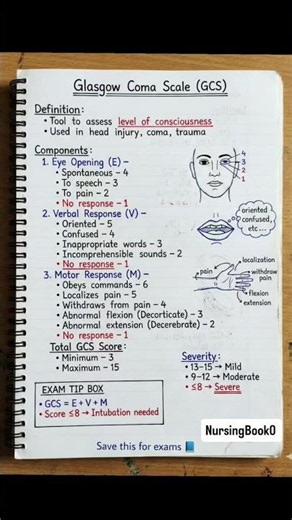 Glasgow Coma Scale (GCS)
Definition:
• Tool to assess level of consciousness
• Used in head injury, coma, trauma
Components:
1. Eye Opening (E) –
• Spontaneous – 4
• To speech – 3
• To pain – 2
• No response – 1
4
3
2
1
2. Verbal Response (V) –
• Oriented – 5
• Confused – 4
• Inappropriate words – 3
• Incomprehensible sounds – 2
• No response – 1
oriented
confused,
etc...
3. Motor Response (M) –
• Obeys commands – 6
• Localizes pain – 5
• Withdraws from pain – 4
• Abnormal flexion (Decorticate) – 3
• Abnormal extension (Decerebrate) – 2
• No response – 1
pain
localization
withdraw
pain
flexion
extension
Total GCS Score:
• Minimum – 3
• Maximum – 15
Severity:
• 13–15 → Mild
• 9–12 → Moderate
• ≤8 → Severe
EXAM TIP BOX
• GCS = E + V + M
• Score ≤8 → Intubation needed
NursingBook0
Save this for exams